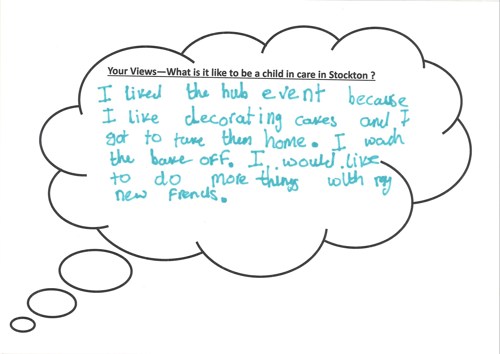 Your Views—What is it like to be a child in care in Stockton ?
I liked the hub event because
I like decorating cakes and I
got to take them home. I wach
the bake off. I would like
to do more things with my
new frends.